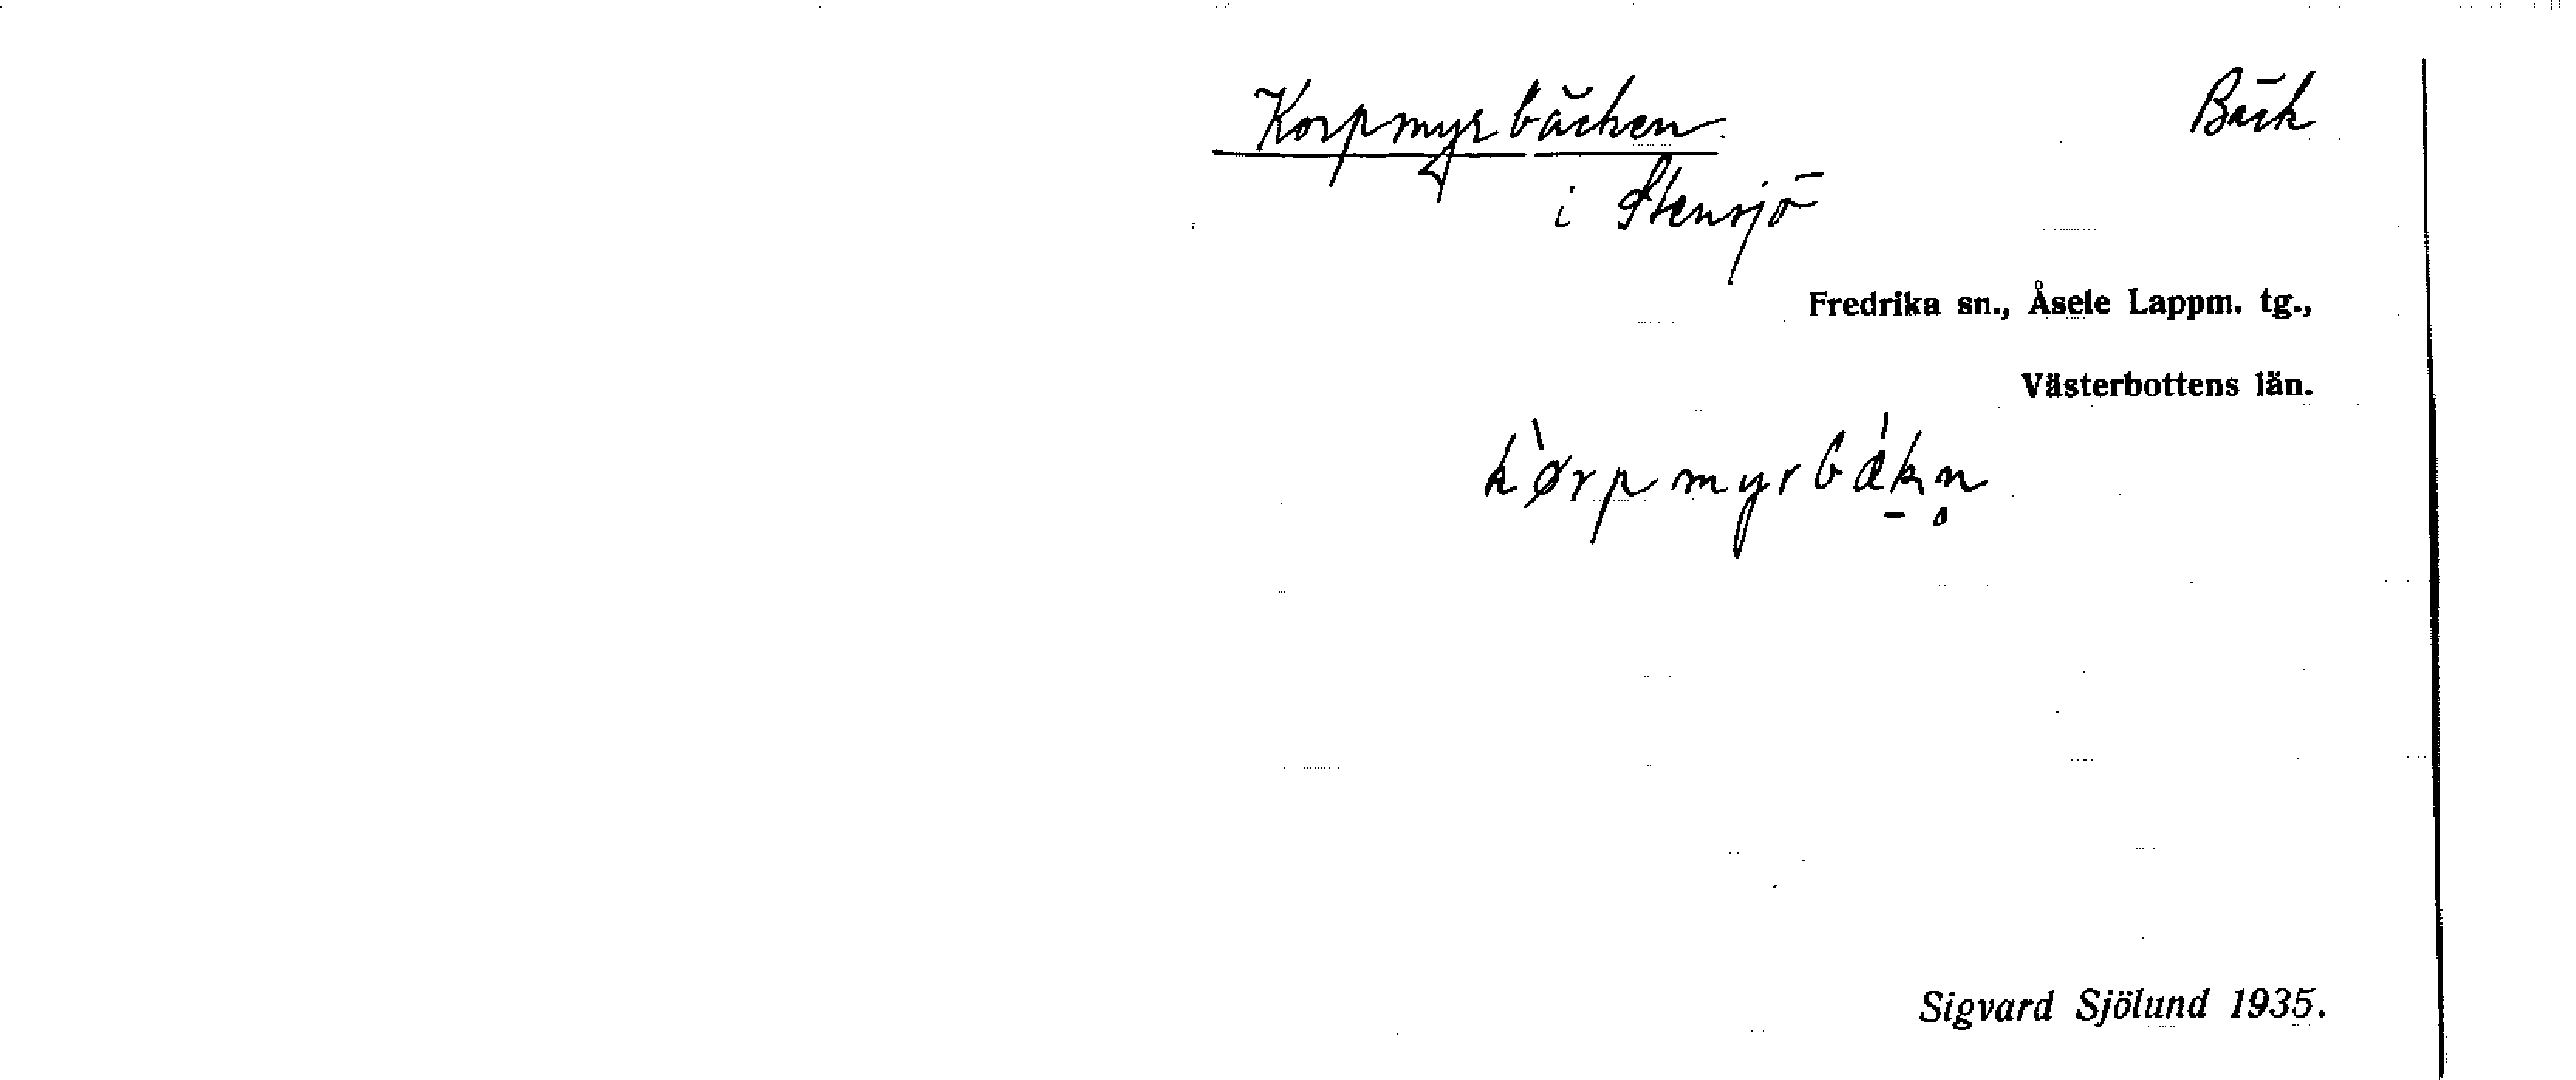 Korpmyrbäcken Bäck
i Stensjö
Fredrika sn., Åsele Lappm. tg.,
Västerbottens län.
kørpmyrbäk̠n̥
Sigvard Sjölund 1935.